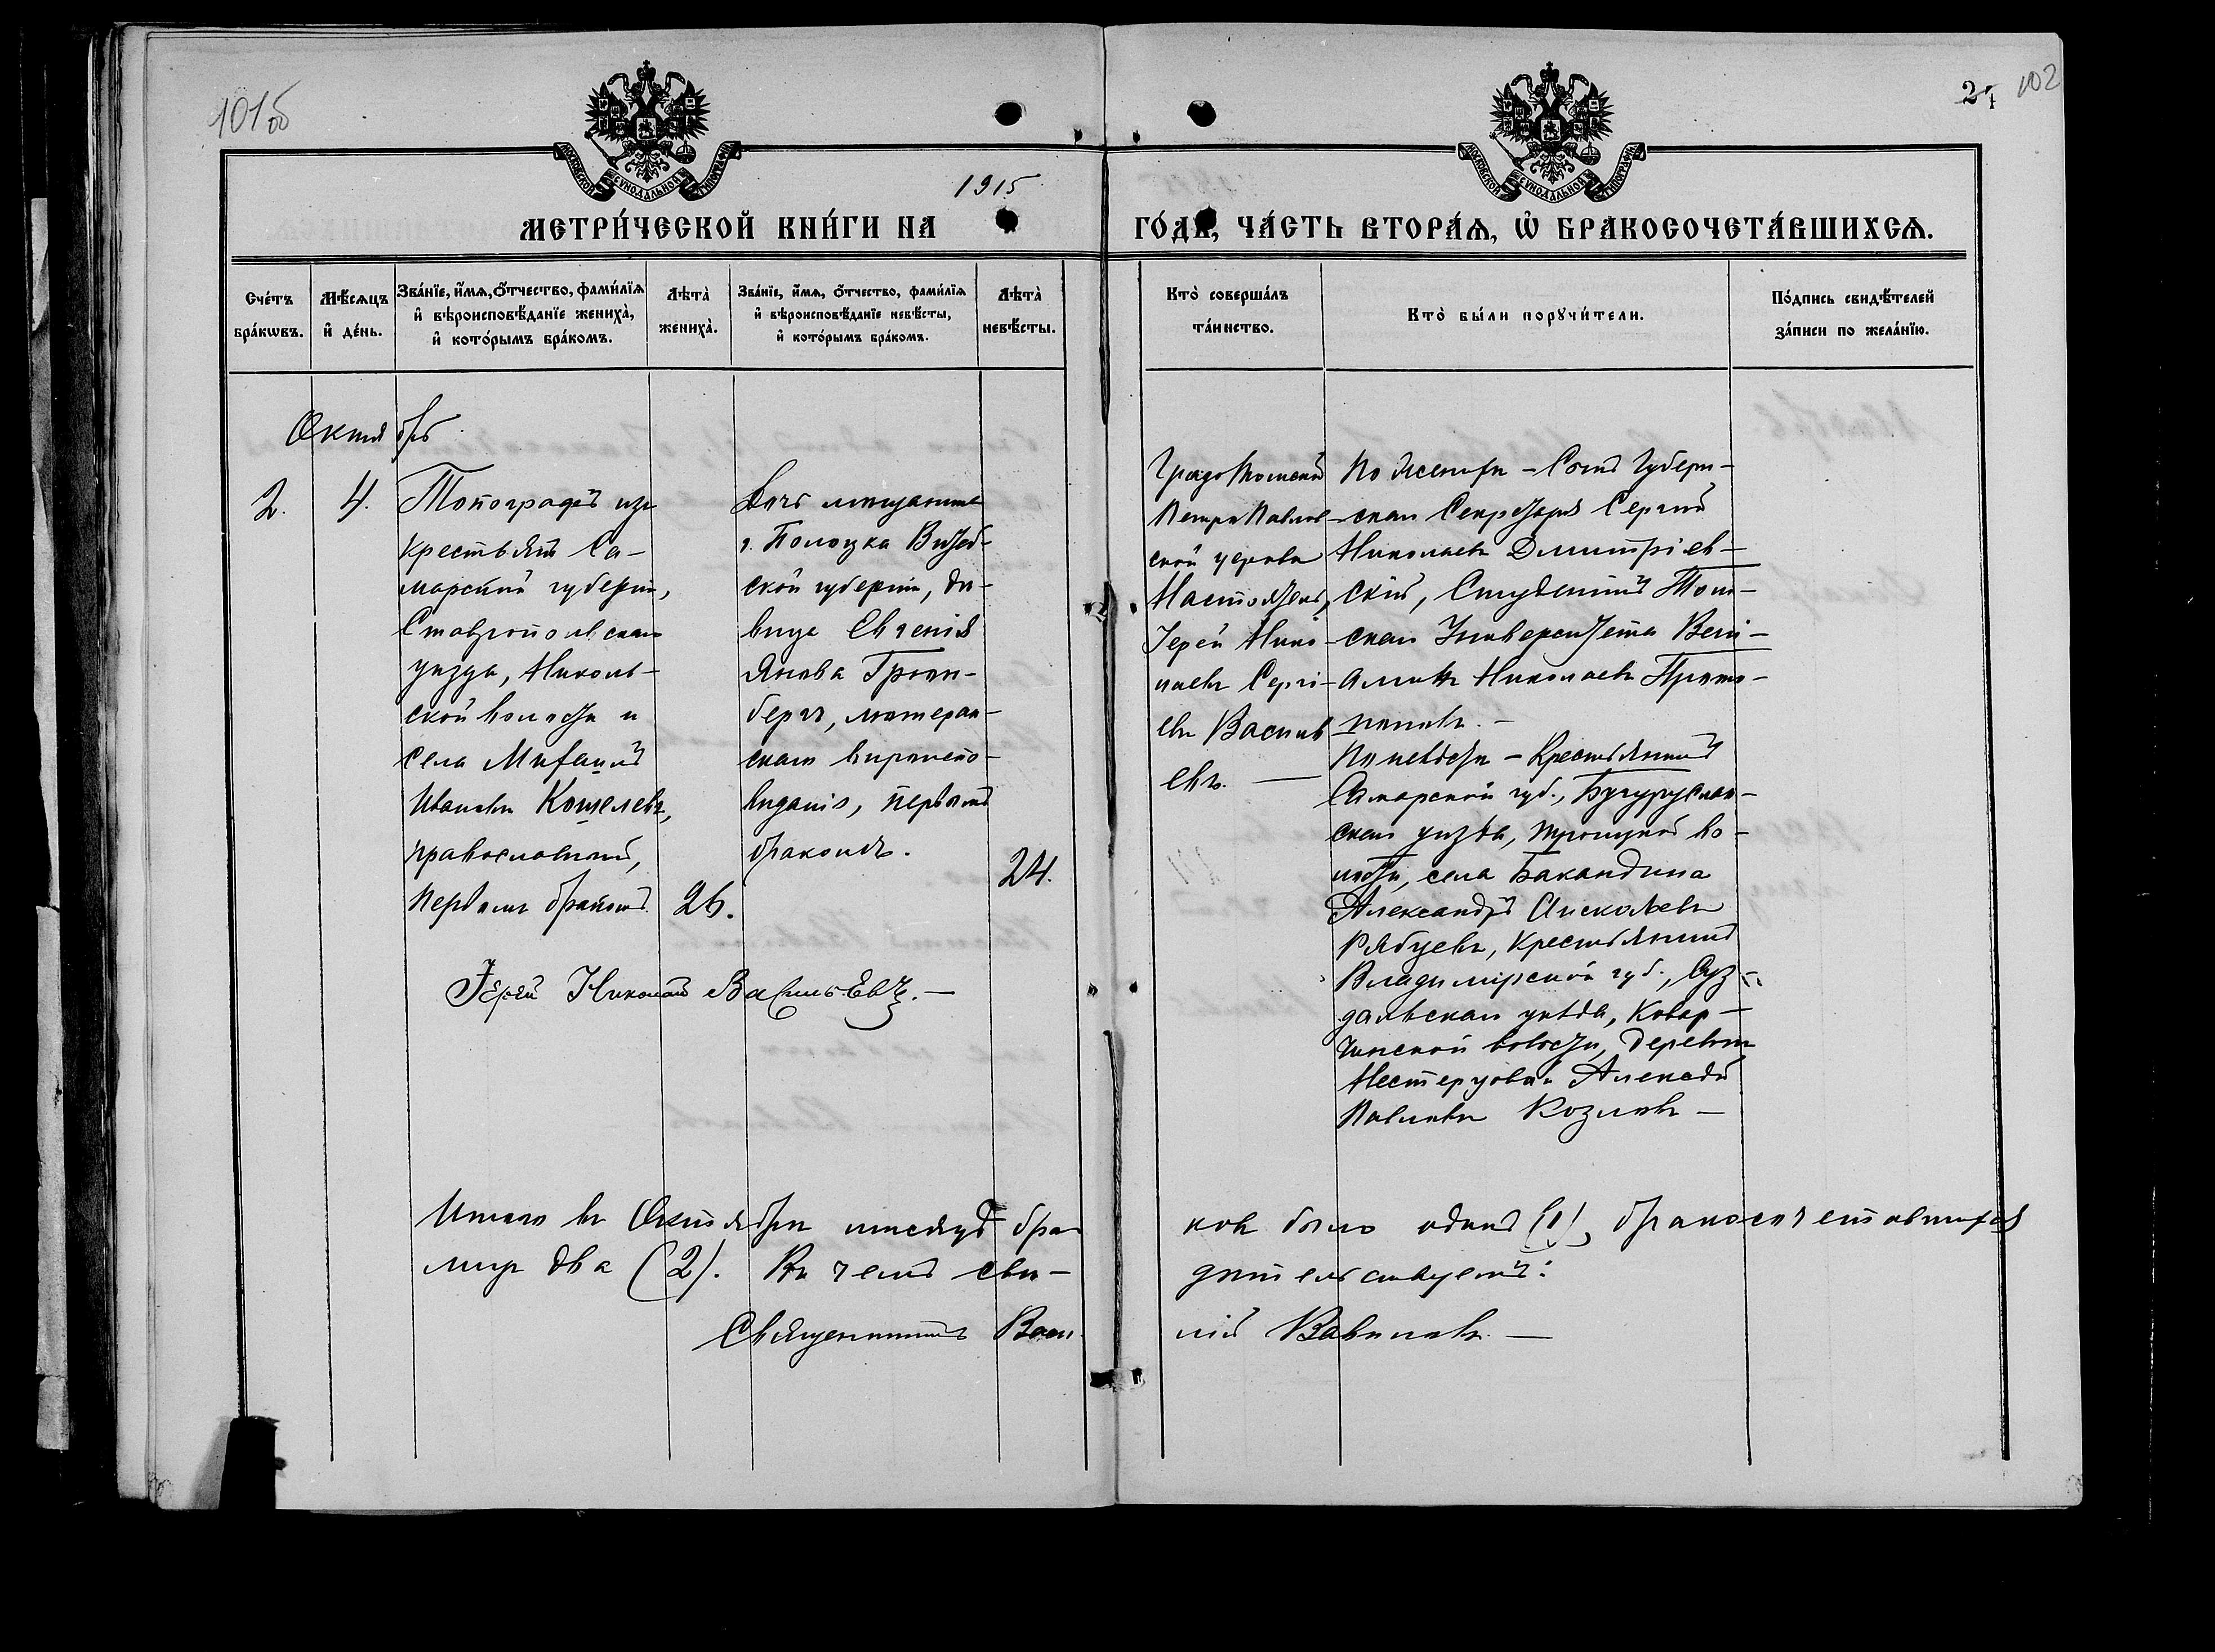 101об
24 102
МОСКОВСКОЙ СѴНОДАЛЬНОЙ ТИПОГРАФІИ
МОСКОВСКОЙ СѴНОДАЛЬНОЙ ТИПОГРАФІИ
1915
МЕТРИ́ЧЕСКОЙ КНИ́ГИ НА
ГО́ДЪ, ЧА́СТЬ ВТОРА́Ѧ, Ѽ БРАКОСОЧЕТА́ВШИХСѦ.
Сче́тъ
бра́кѡвъ.
Мѣ́сѧцъ
и҆ де́нь.
Зва́нїе, и҆́мѧ, о҆́тчество, фами́лїѧ
и҆ вѣроисповѣ́данїе жениха̀,
и҆ кото́рымъ бра́комъ.
Лѣта̀
жениха̀.
Зва́нїе, и҆́мѧ, о҆́тчество, фами́лїѧ
и҆ вѣроисповѣ́данїе невѣ́сты,
и҆ кото́рымъ бра́комъ.
Лѣта̀
невѣ́сты.
Кто̀ соверша́лъ
та́инство.
Кто̀ бы́ли порꙋчи́тели.
По́дпись свидѣ́телей
за́писи по жела́нїю.
Октябрь
2.
4.
Топографъ изъ
крестьянъ Са-
марской губерніи,
Ставропольскаго
уѣзда, Николь-
ской волости и
села Михаилъ
Ивановъ Кошелевъ,
православный,
первымъ бракомъ.
26.
Дочь мѣщанина
г. Полоцка Витеб-
ской губерніи, дѣ-
вица Евгенія
Янова Гринн-
бергъ, лютеран-
скаго вѣроиспо-
вѣданія, первымъ
бракомъ.
24.
Градо Томской
Петро Павлов-
ской церкви
Настоятель,
Іерей Нико-
лаевъ Сергі-
евъ Василь
евъ. —
По женихѣ – Сынъ Губерн-
скаго Секретаря Сергій
Николаевъ Дмитріев-
скій, Студентъ Том-
скаго Университета Вені-
аминъ Николаевъ Прото-
поповъ. –
По невѣстѣ – Крестьянинъ
Самарской губ., Бугуруслан-
скаго уѣзда, Троицкой во-
лости, села Бакандина
Александръ
Рябцевъ, крестьянинъ
Владимірской губ., Суз-
дальскаго уѣзда, Ковар-
чинской волости, деревни
Алексѣй
Павловъ Козловъ –
Іерей Николай Васильевъ. –
Итого въ Октябрѣ мѣсяцѣ бра
ковъ было одинъ (1), бракосочетавшихся
лицъ два (2). Въ чемъ сви-
дѣтельствуетъ:
Священникъ Васи
лій Вавиловъ. –